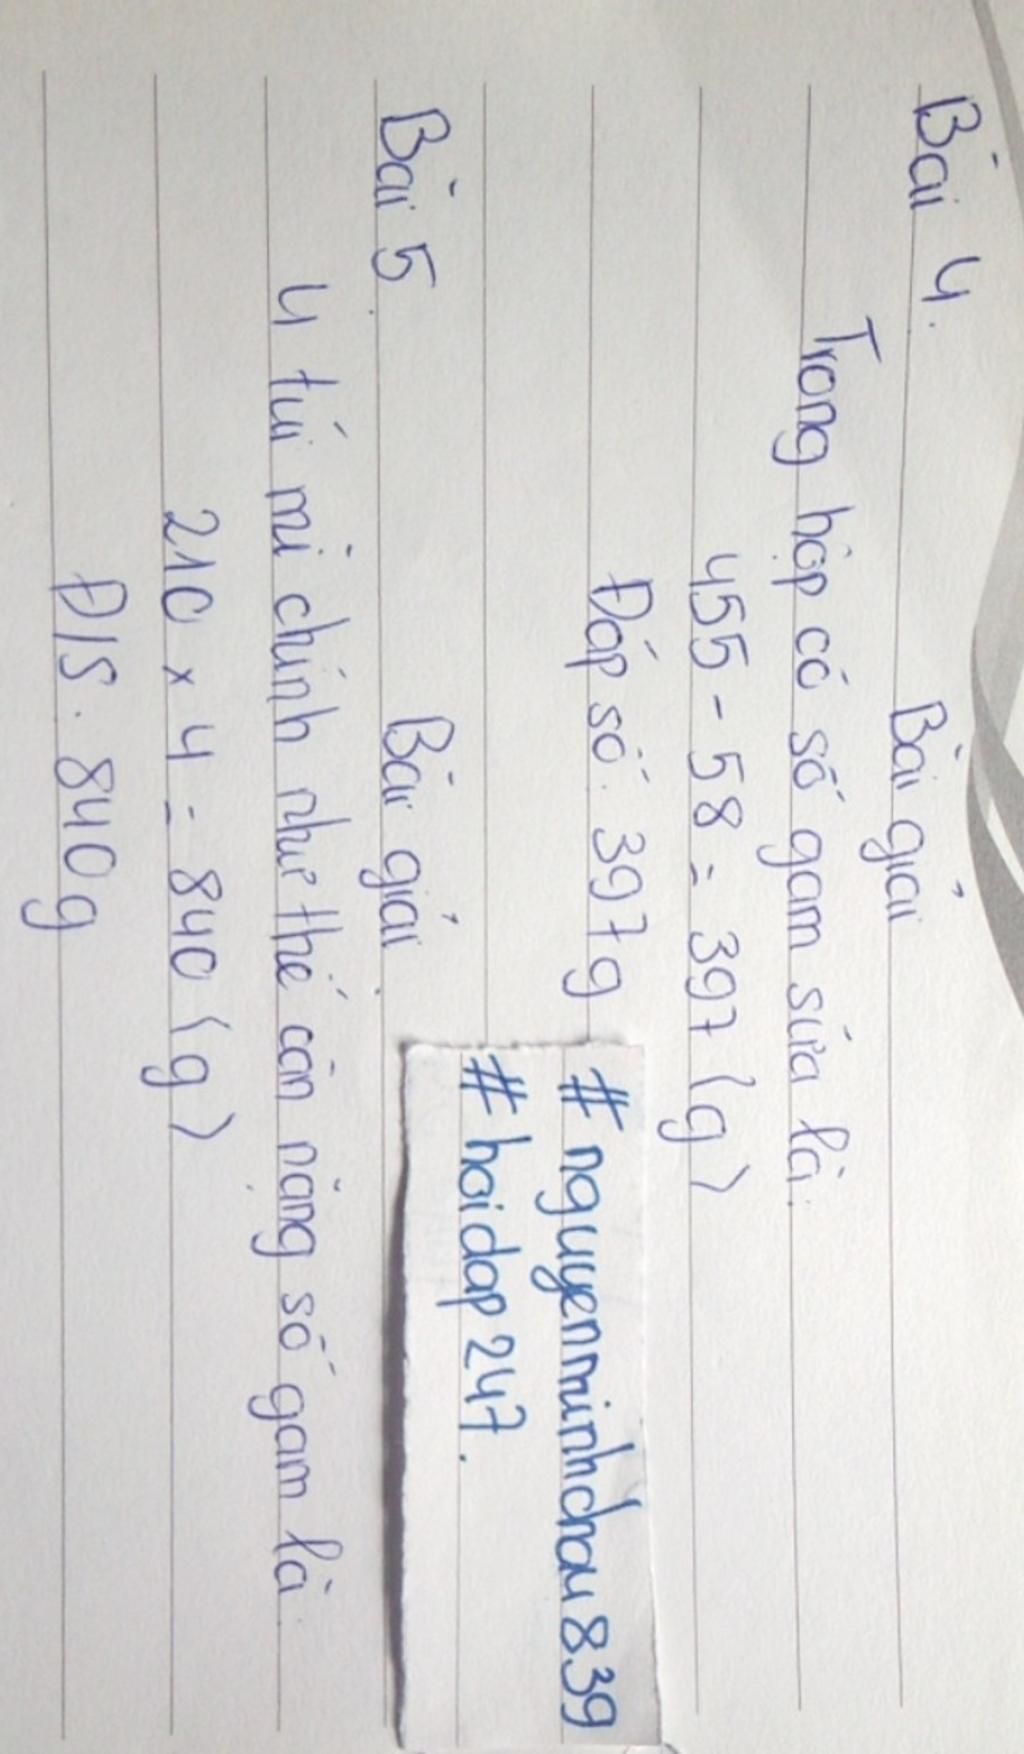 Bài 4.
Bài giải
Trong hộp có số gam sữa là:
455 - 58 = 397 (g)
Đáp số: 397g
# nguyenminhchau839
# hoidap247.
Bài 5
Bài giải.
4 túi mì chính như thế cân nặng số gam là:
210 x 4 = 840 (g)
Đ/S: 840g